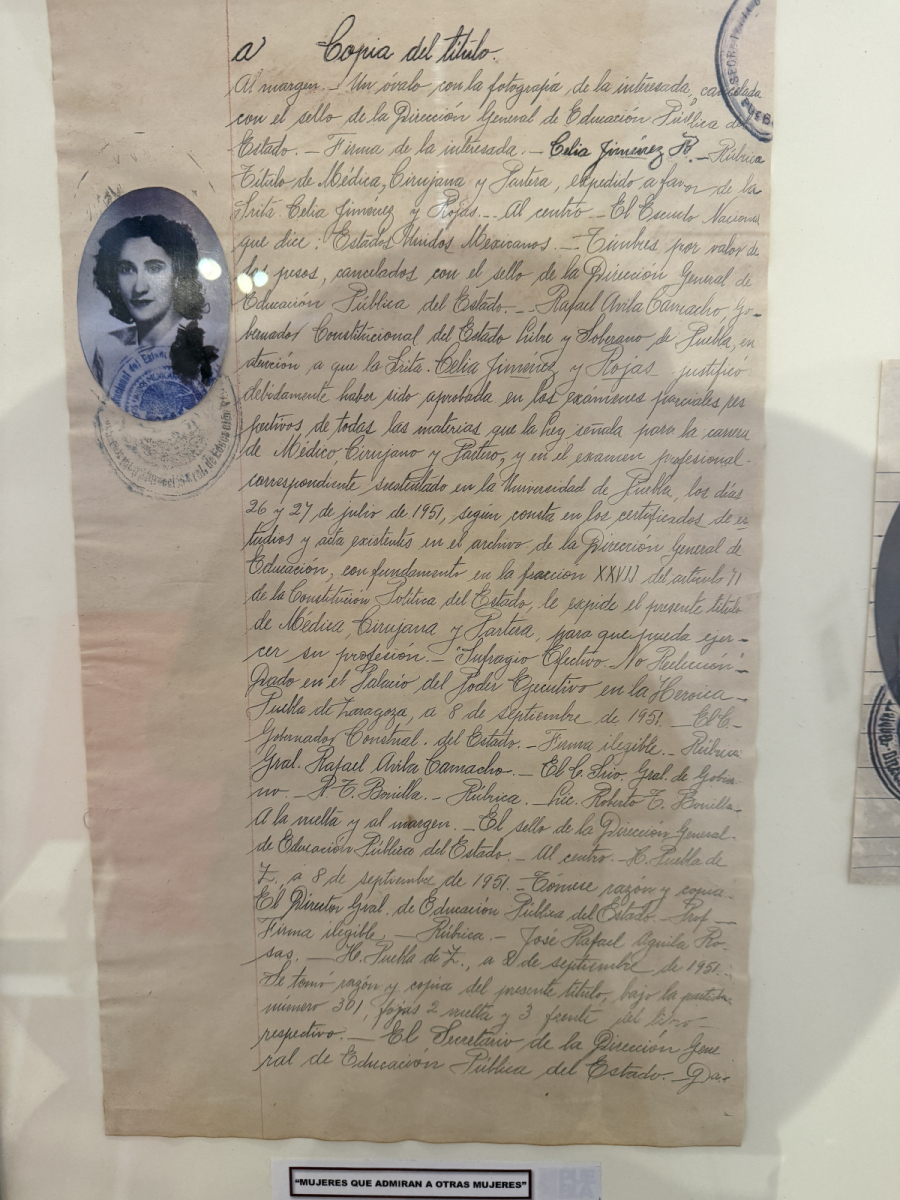 a Copia del título.
Al margen. — Un óvalo con la fotografía, de la interesada, cancelada
con el sello de la Dirección General de Educación Pública del
Estado. — Firma de la interesada. — Celia Jiménez R. — Rúbrica
Título de Médica, Cirujana y Partera, expedido a favor de la
Srita. Celia Jiménez y Rojas. — Al centro. — El Escudo Nacional
que dice: Estados Unidos Mexicanos. — Timbres por valor de
dos pesos, cancelados con el sello de la Dirección General de
Educación Pública del Estado. — Rafael Avila Camacho, Go-
bernador Constitucional del Estado Libre y Soberano de Puebla, en
atención a que la Srita. Celia Jiménez y Rojas justificó
debidamente haber sido aprobada en los exámenes parciales res
pectivos de todas las materias que la Ley señala para la carrera
de Médico, Cirujano y Partero, y en el examen profesional
correspondiente sustentado en la Universidad de Puebla, los días
26 y 27 de julio de 1951, según consta en los certificados de es
tudios y acta existentes en el archivo de la Dirección General de
Educación, con fundamento en la fracción XXVII del artículo 71
de la Constitución Política del Estado, le expide el presente título
de Médica, Cirujana y Partera, para que pueda ejer-
cer su profesión. — "Sufragio Efectivo. No Reelección" —
Dado en el Palacio del Poder Ejecutivo en la Heroica —
Puebla de Zaragoza, a 8 de septiembre de 1951. — El C.
Gobernador Constnal. del Estado. — Firma ilegible. — Rúbrica
Gral. Rafael Avila Camacho. — El C. Srio. Gral. de Gobier-
no. — R. T. Bonilla. — Rúbrica. — Lic. Roberto T. Bonilla.
A la vuelta y al margen. — El sello de la Dirección General
de Educación Pública del Estado. — Al centro. — H. Puebla de
Z. a 8 de septiembre de 1951. — Tómese razón y copia
El Director Gral. de Educación Pública del Estado. — Prof. —
Firma ilegible. — Rúbrica. — José Rafael Aguila Ro-
sas. — H. Puebla de Z., a 8 de septiembre de 1951.
Se tomó razón y copia del presente título, bajo la partida
número 301, fojas 2 vuelta y 3 frente del libro
respectivo. — El Secretario de la Dirección Gene
ral de Educación Pública del Estado. —
"MUJERES QUE ADMIRAN A OTRAS MUJERES"